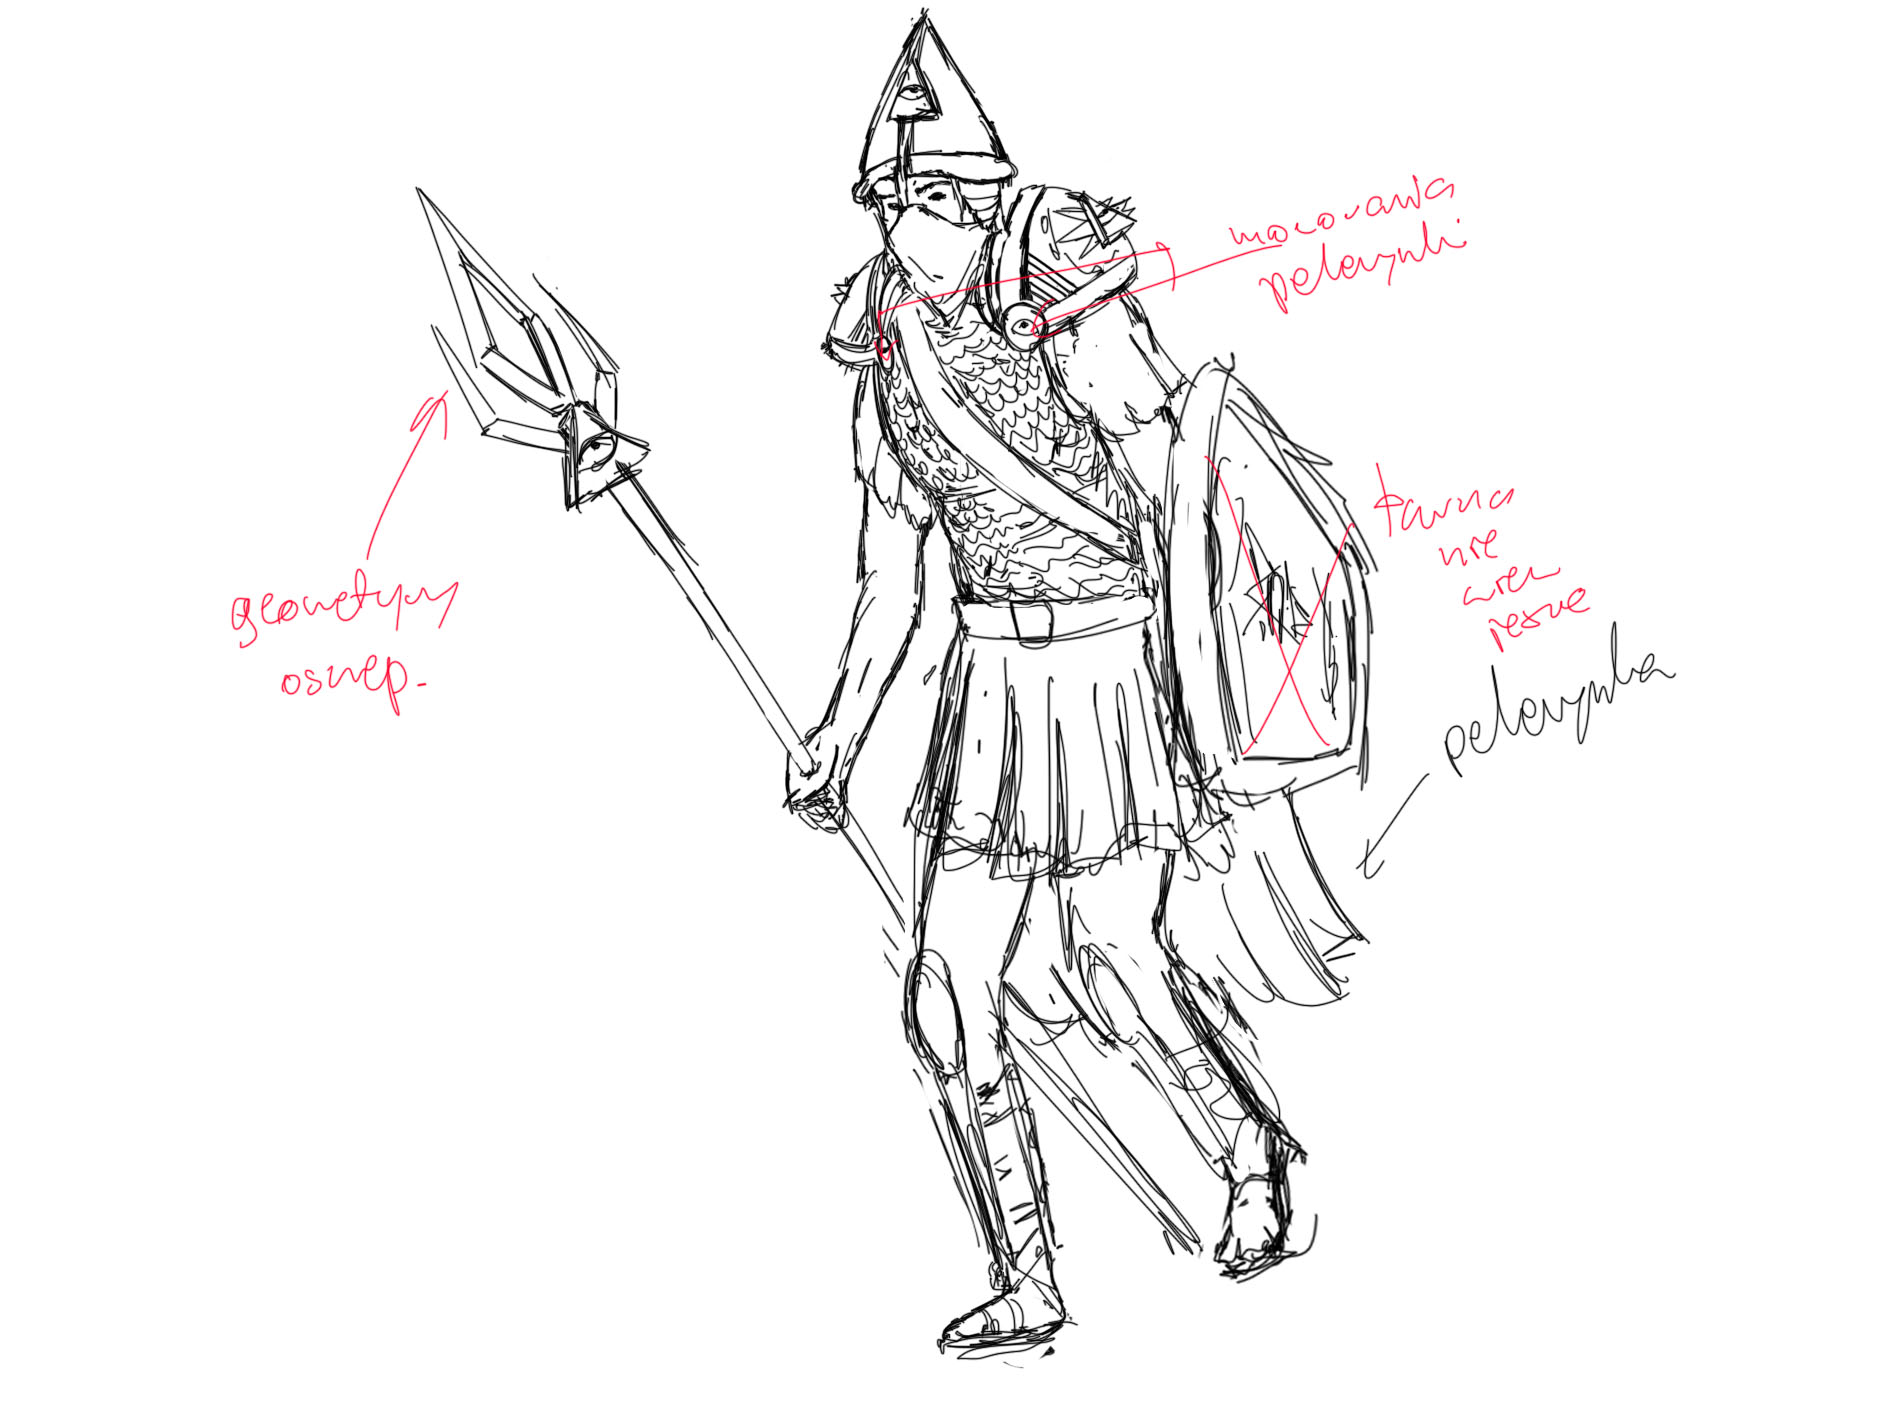 mocowania
pelerynki
geometryczny
oszczep.
tarcza
nie
wiem
jeszcze
pelerynka